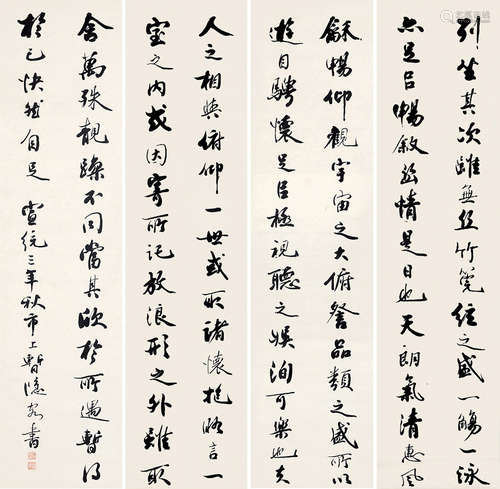 列坐其次雖無丝竹筦絃之盛一觴一詠
亦足㠯暢敘幽情是日也天朗氣清惠風
龢暢仰觀宇宙之大俯詧品類之盛所以
遊目騁懷足㠯極視聽之娛洵可樂也夫
人之相與俯仰一世或取諸懷抱晤言一
室之内或因寄所託放浪形之外雖取
舍萬殊靚躁不同當其欣於所遇暫得
於己快然自足 宣統三年秋市上暫隱客書